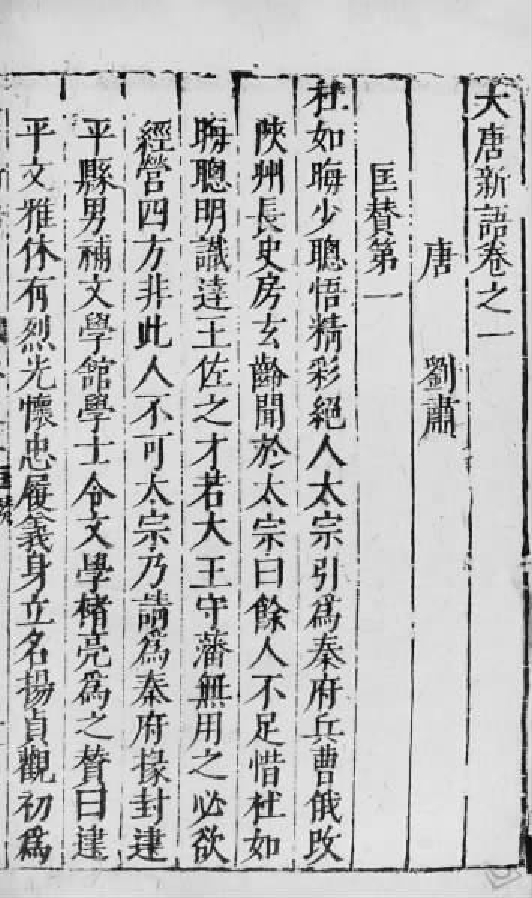 大唐新語卷之一
唐 劉肅
匡贊第一
杜如晦少聰悟精彩絕人太宗引爲秦府兵曹俄改
陝州長史房玄齡聞於太宗曰餘人不足惜杜如
晦聰明識達王佐之才若大王守藩無用之必欲
經營四方非此人不可太宗乃請爲秦府掾封建
平縣男補文學館學士令文學褚亮爲之贊曰建
平文雅休有烈光懷忠履義身立名揚貞觀初爲